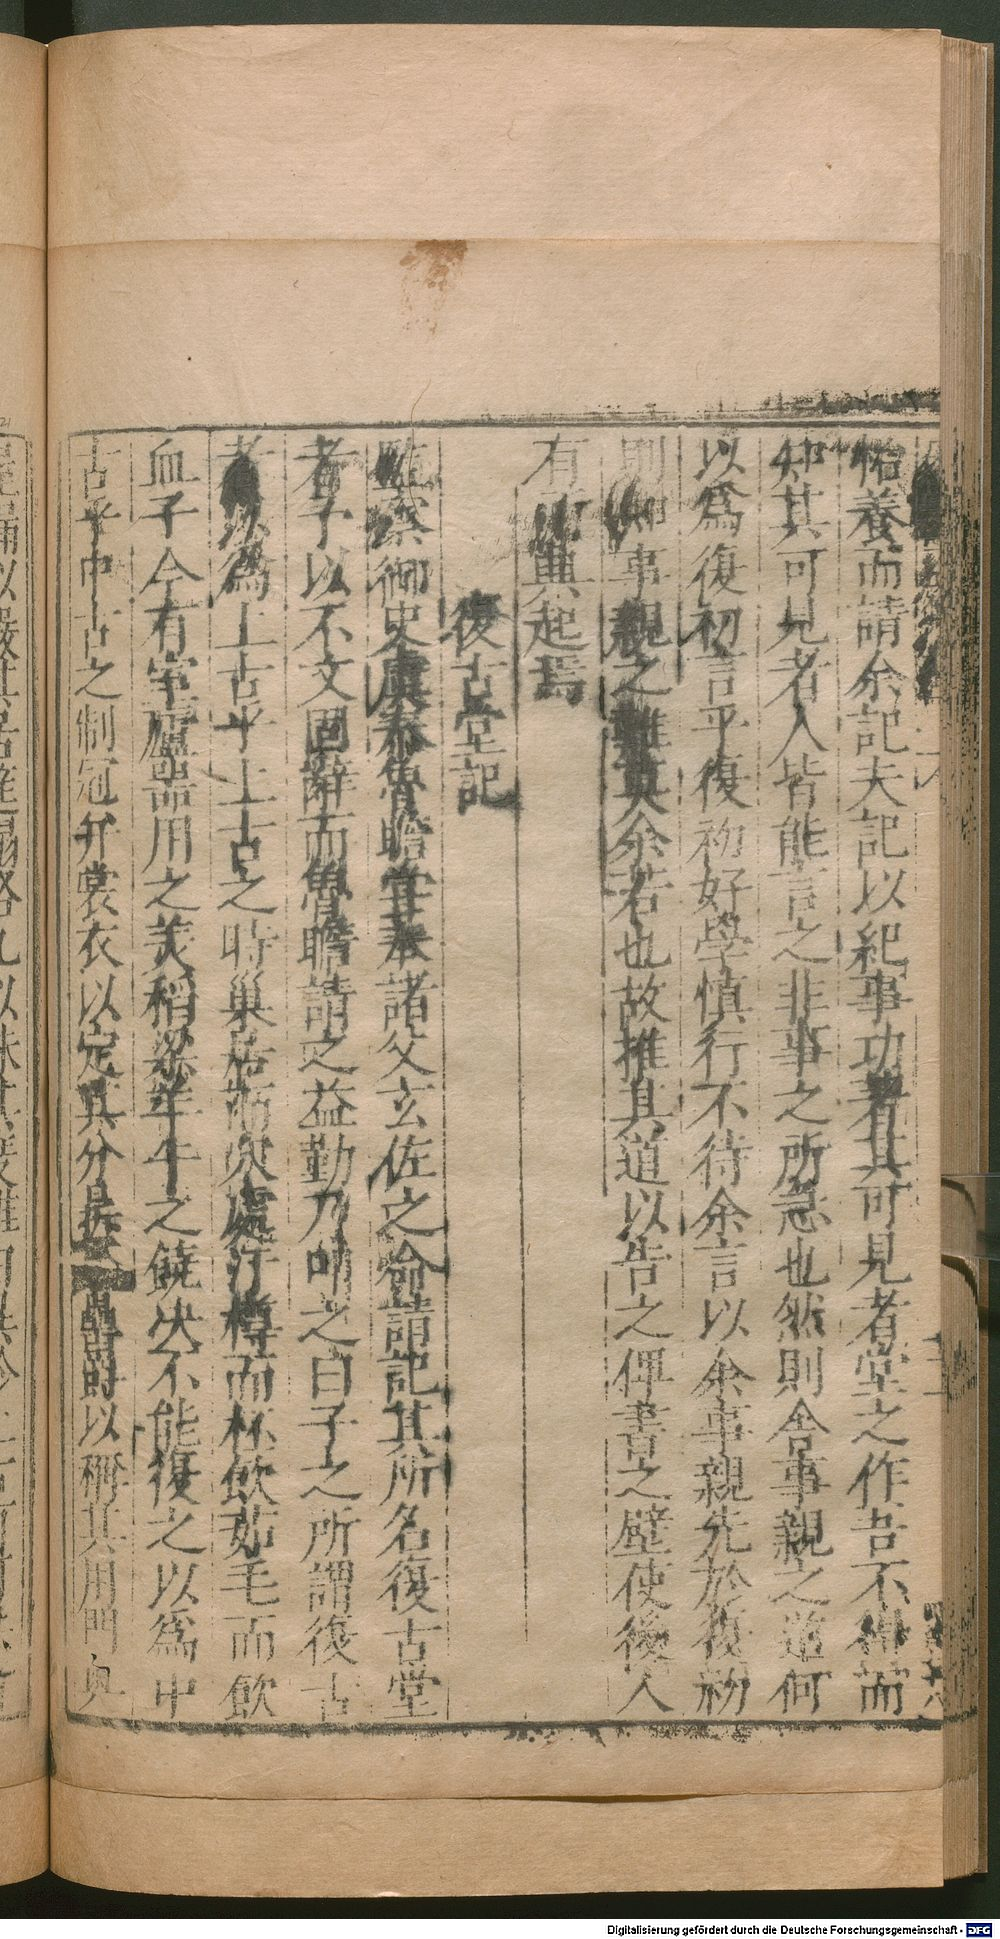 怙養而請余記夫記以紀事功者其可見者堂之作吾不得而
知其可見者人皆能言之非事之所急也然則舍事親之道何
以爲復初言乎復初好學愼行不待余言以余事親先於復初
則知事親之難莫余若也故推其道以告之俾書之壁使後人
有所興起焉
復古堂記
監察御史虞泰魯瞻嘗奉諸父玄佐之命請記其所名復古堂
者予以不文固辭而魯瞻請之益勤乃叩之曰子之所謂復古
者以爲上古乎上古之時巢居而穴處汙樽而杯飲茹毛而飲
血子今有室廬器用之美稻粱羊牛之饒决不能復之以爲中
古乎中古之制冠弁裳衣以定其分爵以稱其用門奥
Digitalisierung gefördert durch die Deutsche Forschungsgemeinschaft - DFG